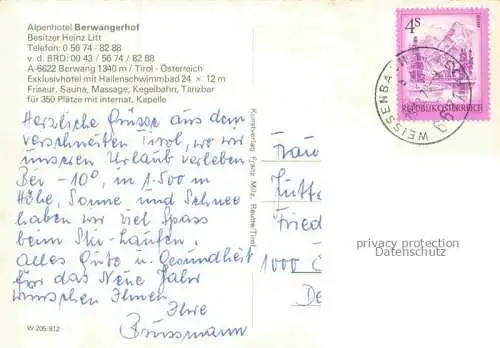 Alpenhotel Berwangerhof
Besitzer Heinz Litt
Telefon: 0 56 74 - 82 88
v. d. BRD: 00 43 / 56 74 / 82 88
A-6622 Berwang 1340 m / Tirol - Österreich
Exklusivhotel mit Hallenschwimmbad 24 × 12 m
Friseur, Sauna, Massage, Kegelbahn, Tanzbar
für 350 Plätze mit internat. Kapelle
Herzliche Grüsse aus dem
verschneiten Tirol, wo wir
unseren Urlaub verleben
Bei -10°, in 1.500 m
Höhe, Sonne und Schnee
haben wir viel Spass
beim Ski-Laufen,
alles Gute u. Gesundheit
für das Neue Jahr
wünschen Ihnen
Ihre
Brussmann
W 205/812
Kunstverlag Franz Milz, Reutte/Tirol
4S
REPUBLIK ÖSTERREICH
WEISSENBACH
Frau
Jutta
Fried
1000
privacy protection
Datenschutz